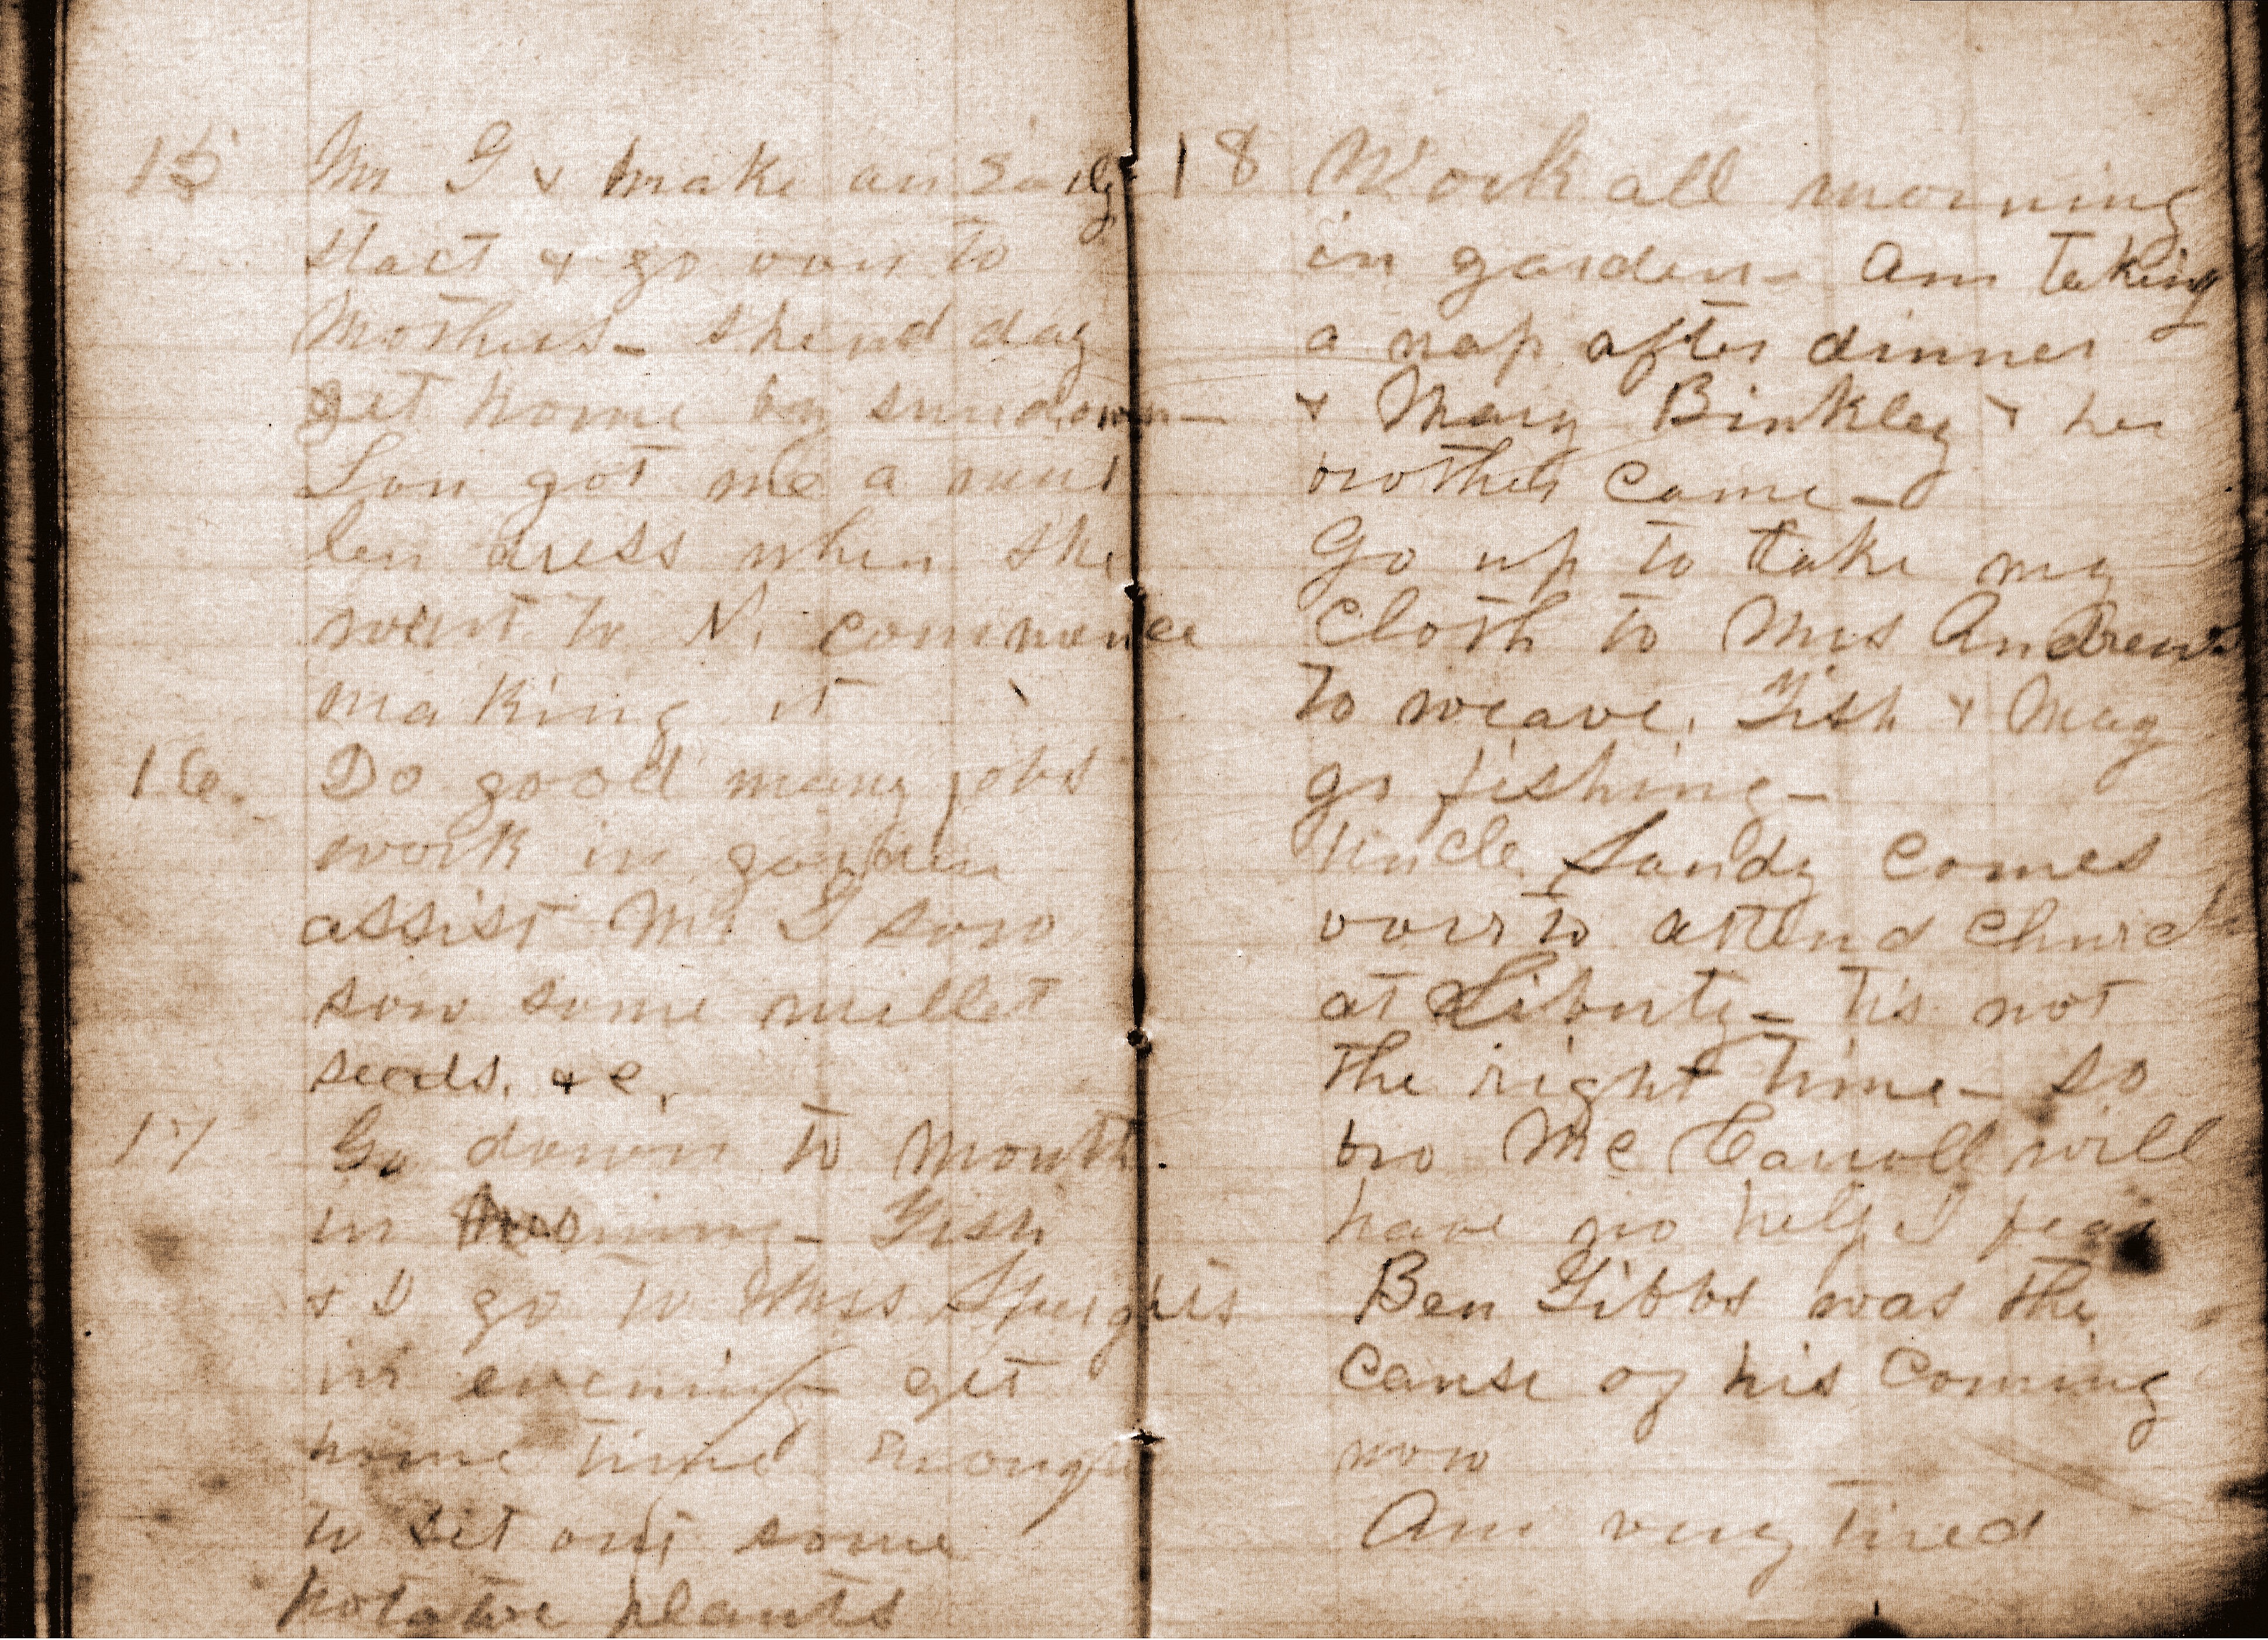 15 Mr G & I make an early
start & go over to
Mothers - spend day
get home by sundown -
Lou got me a mus
lin dress when she
went to N. commence
making it
16. Do good many jobs
work in garden
assist Mr G sow
sow some millet
seeds. &c.
17 Go down to mouth
in morning - Tish
& I go to Miss Speights
in evening get
home time enough
to set out some
potatoe plants
18 Work all morning
in garden - am taking
a nap after dinner
& Mary Binkley & her
brother came -
Go up to take my
cloth to Mrs Andrews
to weave. Tish & Mag
go fishing -
Uncle Sandy comes
over to attend church
at Liberty - tis not
the right time - so
bro Mc Carroll will
have no help I fear
Ben Gibbs was the
cause of his coming
now
Am very tired